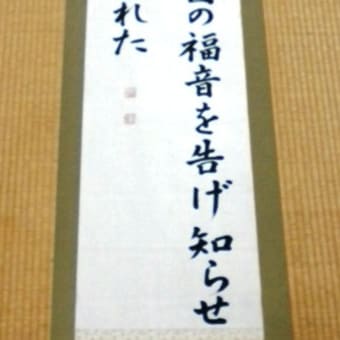 の福音を告げ知らせ
れた